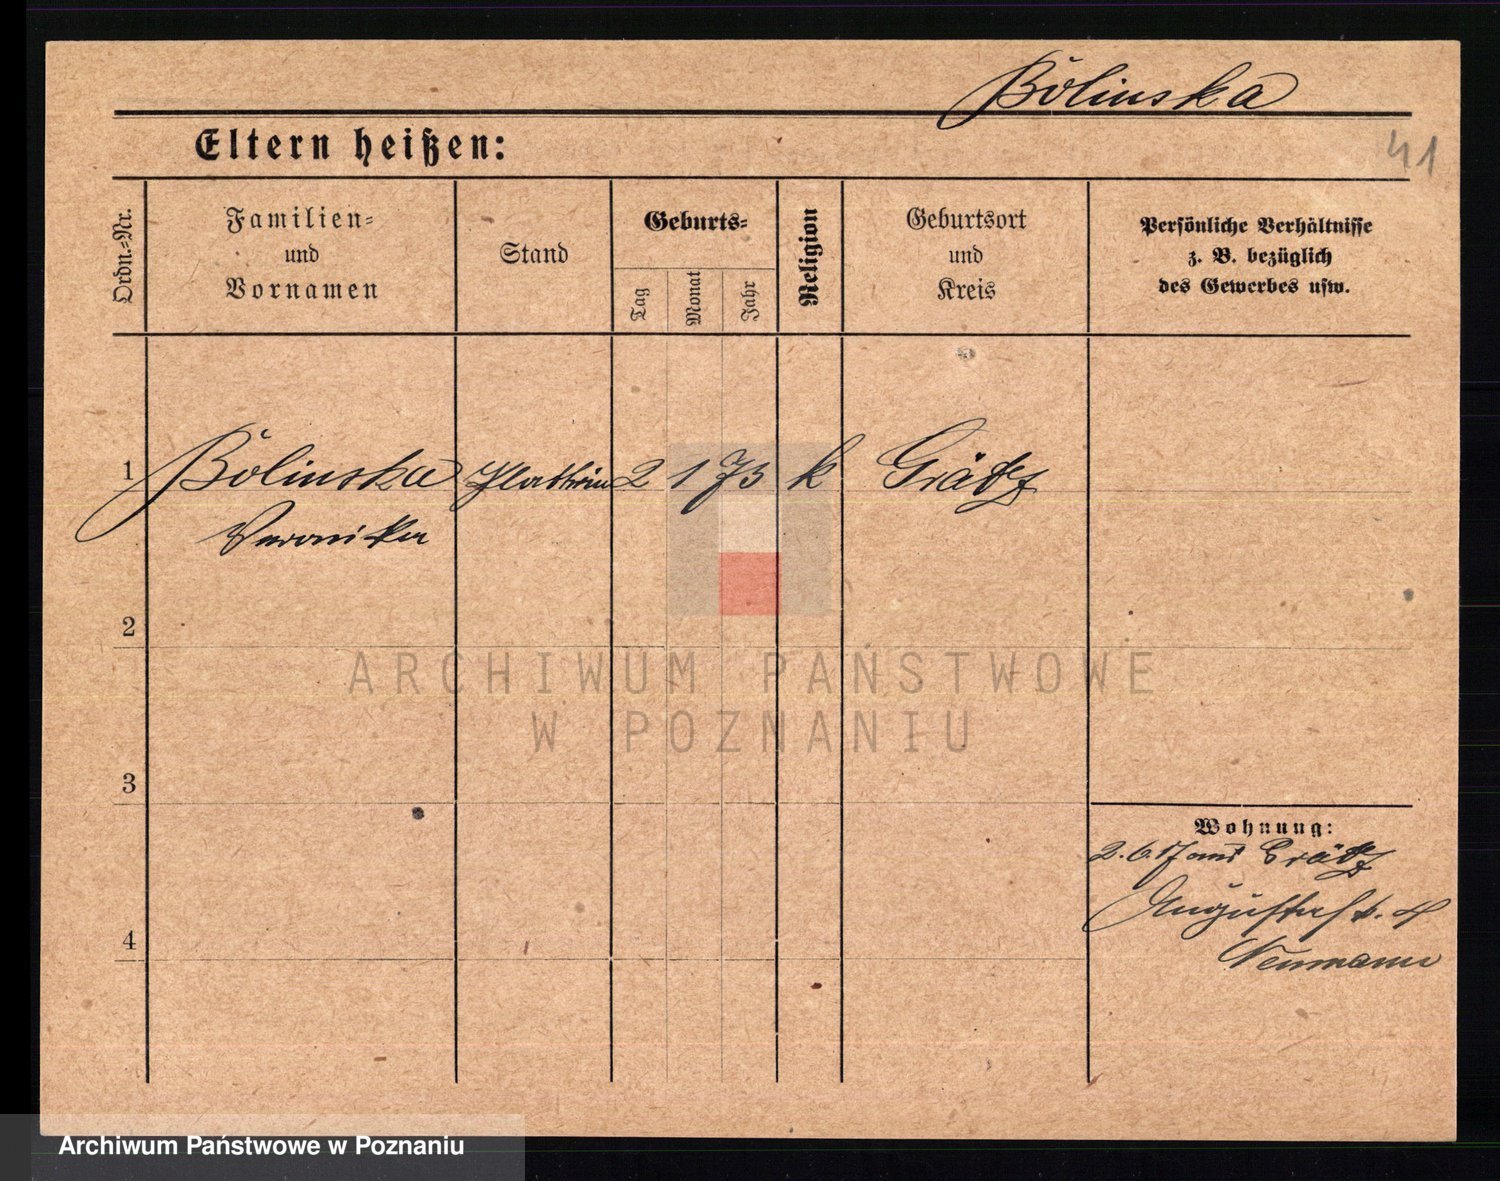 Bölinska
Eltern heißen:
41
Ordn.-Nr.
Familien-
und
Vornamen
Stand
Geburts-
Tag
Monat
Jahr
Religion
Geburtsort
und
Kreis
Persönliche Verhältnisse
z. B. bezüglich
des Gewerbes usw.
1 Bölinska 2 1 73 k Grätz
Veronika
2
3
4
Wohnung:
2.6.17 aus Grätz
Augustastr. 4
Neumann
ARCHIWUM PAŃSTWOWE
W POZNANIU
Archiwum Państwowe w Poznaniu